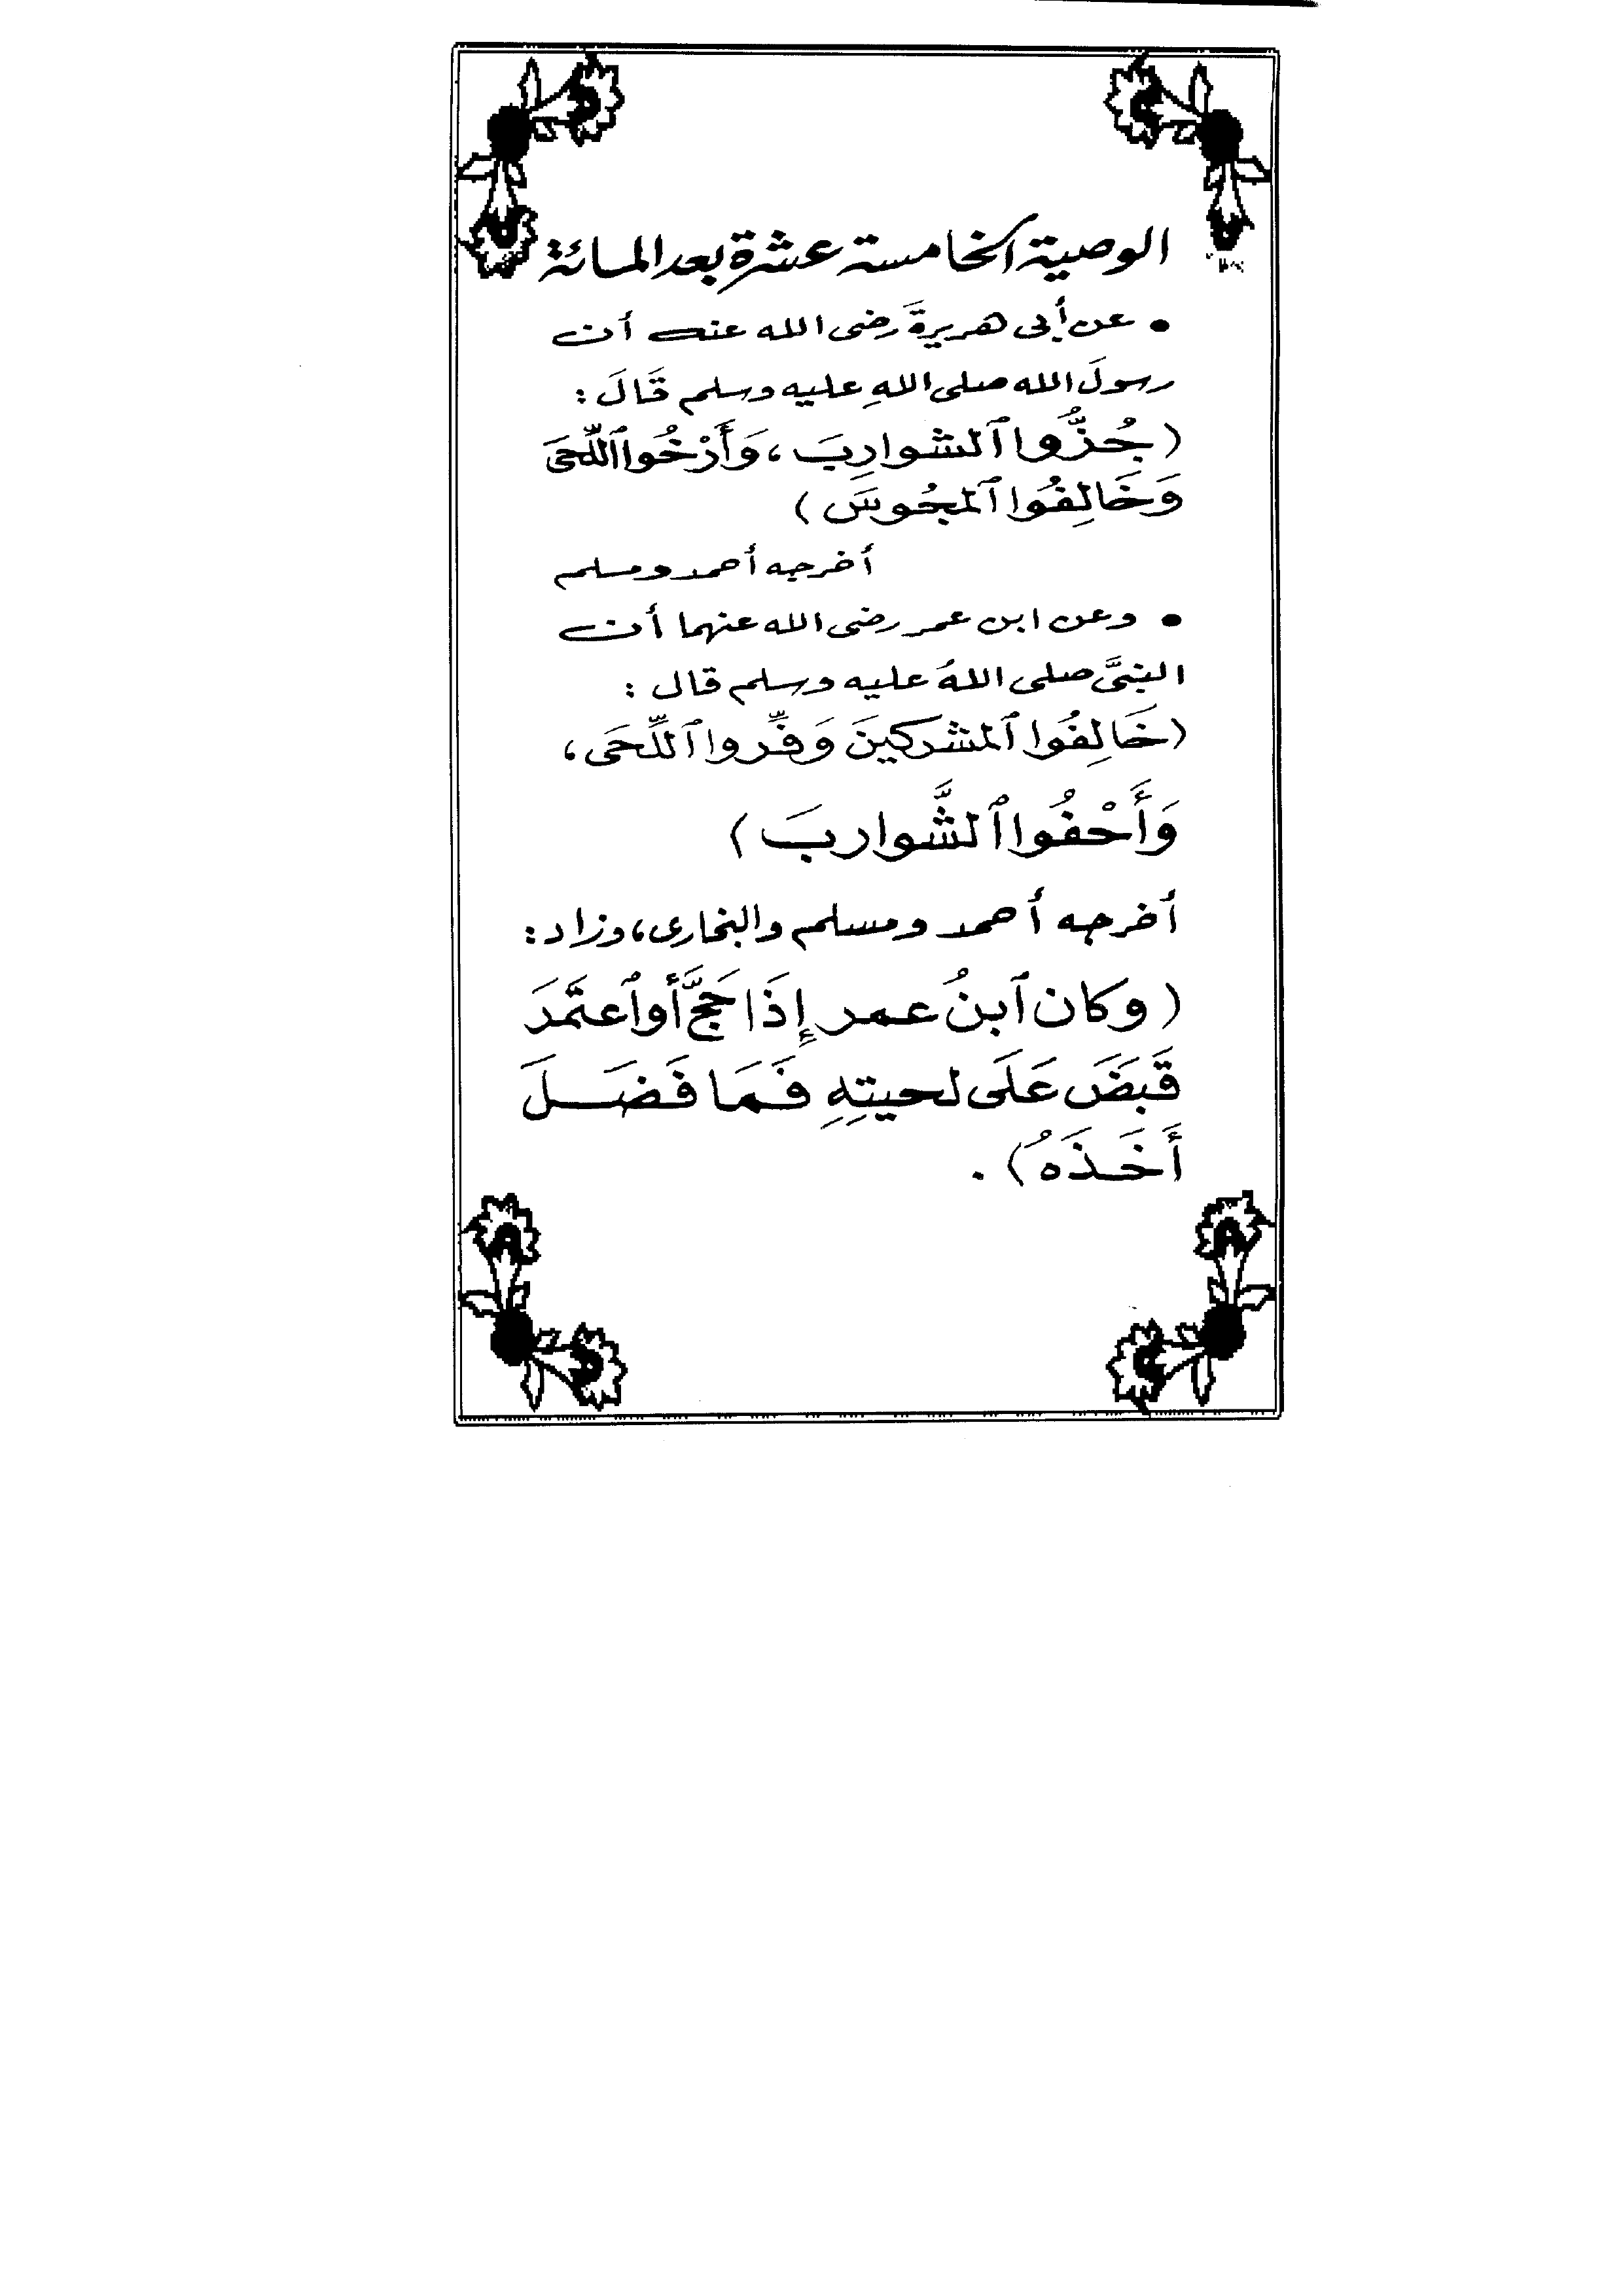 الوصية الخامسة عشرة بعد المائة
• عن أبى هريرةَ رضى الله عنه أن
رسولَ الله صلى اللهِ عليه وسلم قَالَ :
( جُزُّوا ٱلشوارِبَ ، وَأَرْخُوا ٱللِّحَى
وَخَالِفُوا ٱلمجُوسَ )
أخرجه أحمد ومسلم
• وعن ابن عمر رضى الله عنهما أن
النبىَّ صلى اللهُ عليه وسلم قال :
( خَالِفُوا ٱلمشركينَ وَفِّروا ٱللِّحَى ،
وَأَحْفُوا ٱلشَّواربَ )
أخرجه أحمد ومسلم والبخارى ، وزاد :
( وكان ٱبنُ عمر إِذَا حَجَّ أو ٱعتَمَرَ
قَبَضَ عَلَى لحيتِهِ فَمَا فَضَلَ
أَخَذَهُ ) .